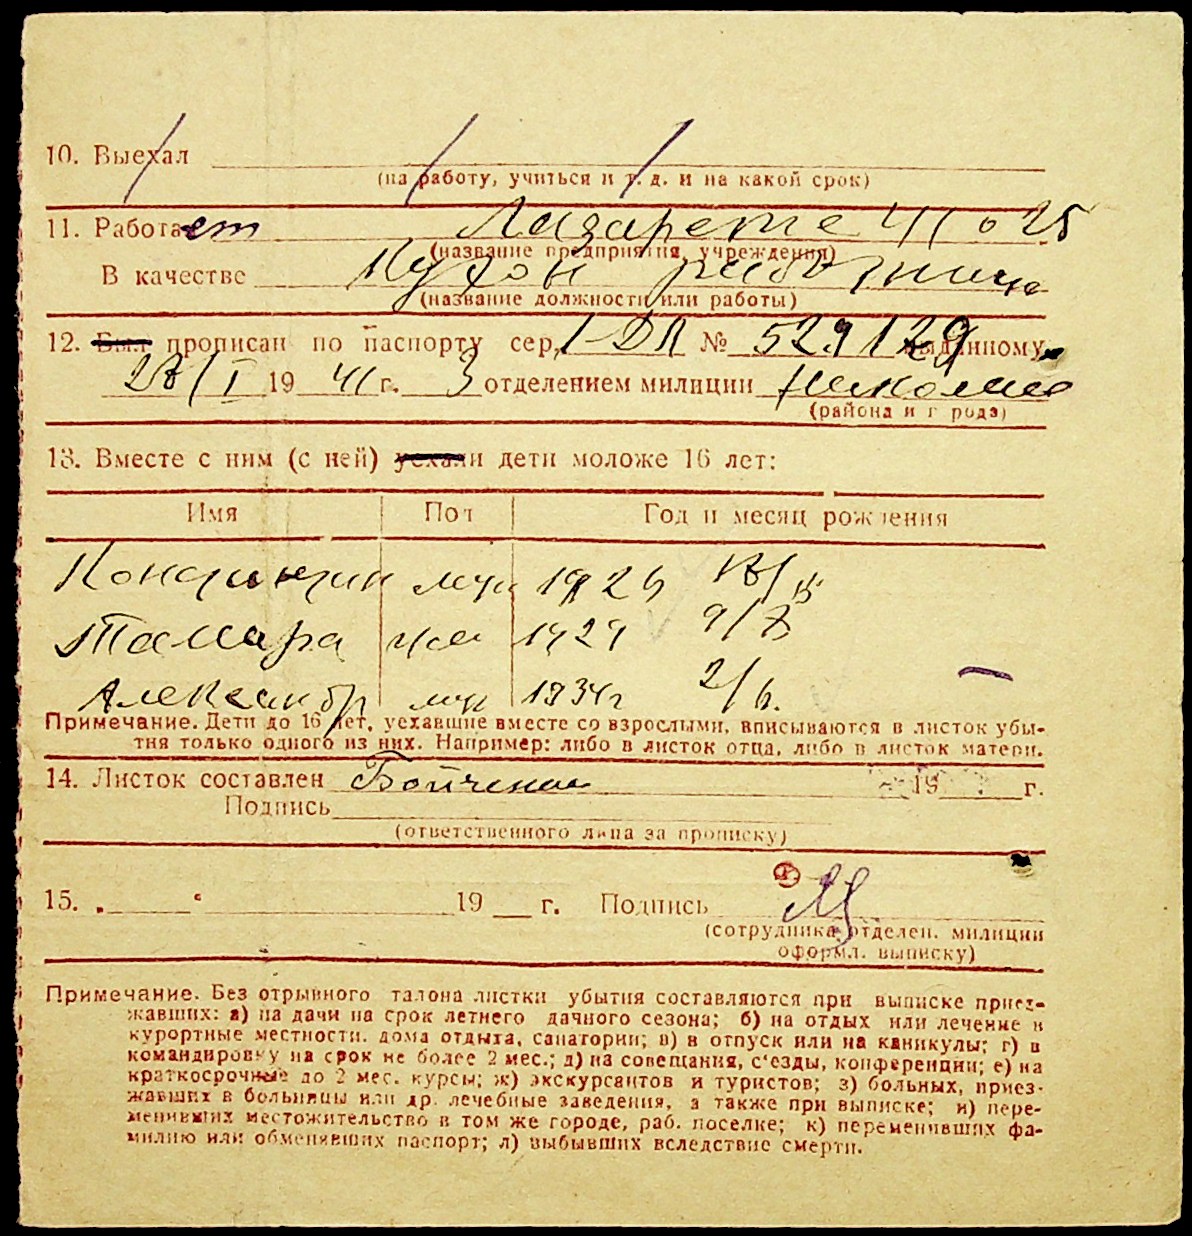 10. Выехал
(на работу, учиться и т. д. и на какой срок)
11. Работает Лазарете 41 о 25
(название предприятия, учреждения)
В качестве Кухон работница
(название должности или работы)
12. Был прописан по паспорту сер. 1-ДЛ № 529129 выданному
28/I 1941 г. 3 отделением милиции
(района и города)
13. Вместе с ним (с ней) уехали дети моложе 16 лет:
Имя Пол Год и месяц рождения
Константин муж 1926 18/
Тамара жен 1929 9/X
Александр муж 1934 г 2/6.
Примечание. Дети до 16 лет, уехавшие вместе со взрослыми, вписываются в листок убы-
тия только одного из них. Например: либо в листок отца, либо в листок матери.
14. Листок составлен Бойченко 19 г.
Подпись
(ответственного лица за прописку)
15. 19 г. Подпись
(сотрудника отделен. милиции
оформл. выписку)
Примечание. Без отрывного талона листки убытия составляются при выписке приез-
жавших: а) на дачи на срок летнего дачного сезона; б) на отдых или лечение в
курортные местности, дома отдыха, санатории; в) в отпуск или на каникулы; г) в
командировку на срок не более 2 мес.; д) на совещания, с'езды, конференции; е) на
краткосрочные до 2 мес. курсы; ж) экскурсантов и туристов; з) больных, приез-
жавших в больницы или др. лечебные заведения, а также при выписке; и) пере-
менивших местожительство в том же городе, раб. поселке; к) переменивших фа-
милию или обменявших паспорт; л) выбывших вследствие смерти.